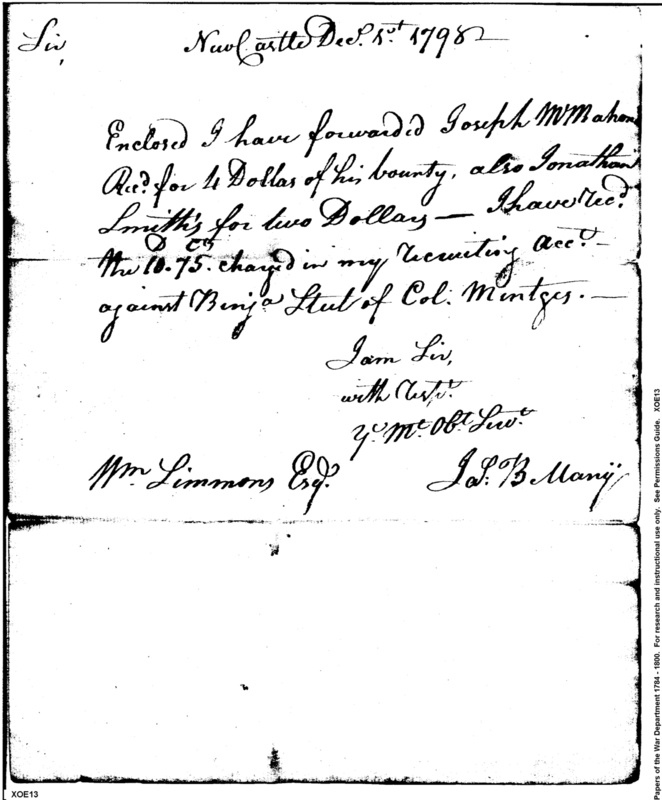 Sir,
NewCastle Decr. 1st. 1798
Enclosed I have forwarded Joseph McMahon
Recd. for 4 Dollas of his bounty, also Jonathan
Smith's for two Dollars — I have recd.
D Cts
the 10.75. charged in my recruiting acct. —
against Benja Stut of Col. Mentges. —
I am Sir,
with rest.
Yr. Mt. Obt. Servt.
Wm. Simmons Esqr.
Jas. B Many
Papers of the War Department 1784 - 1800. For research and instructional use only. See Permissions Guide. XOE13
XOE13